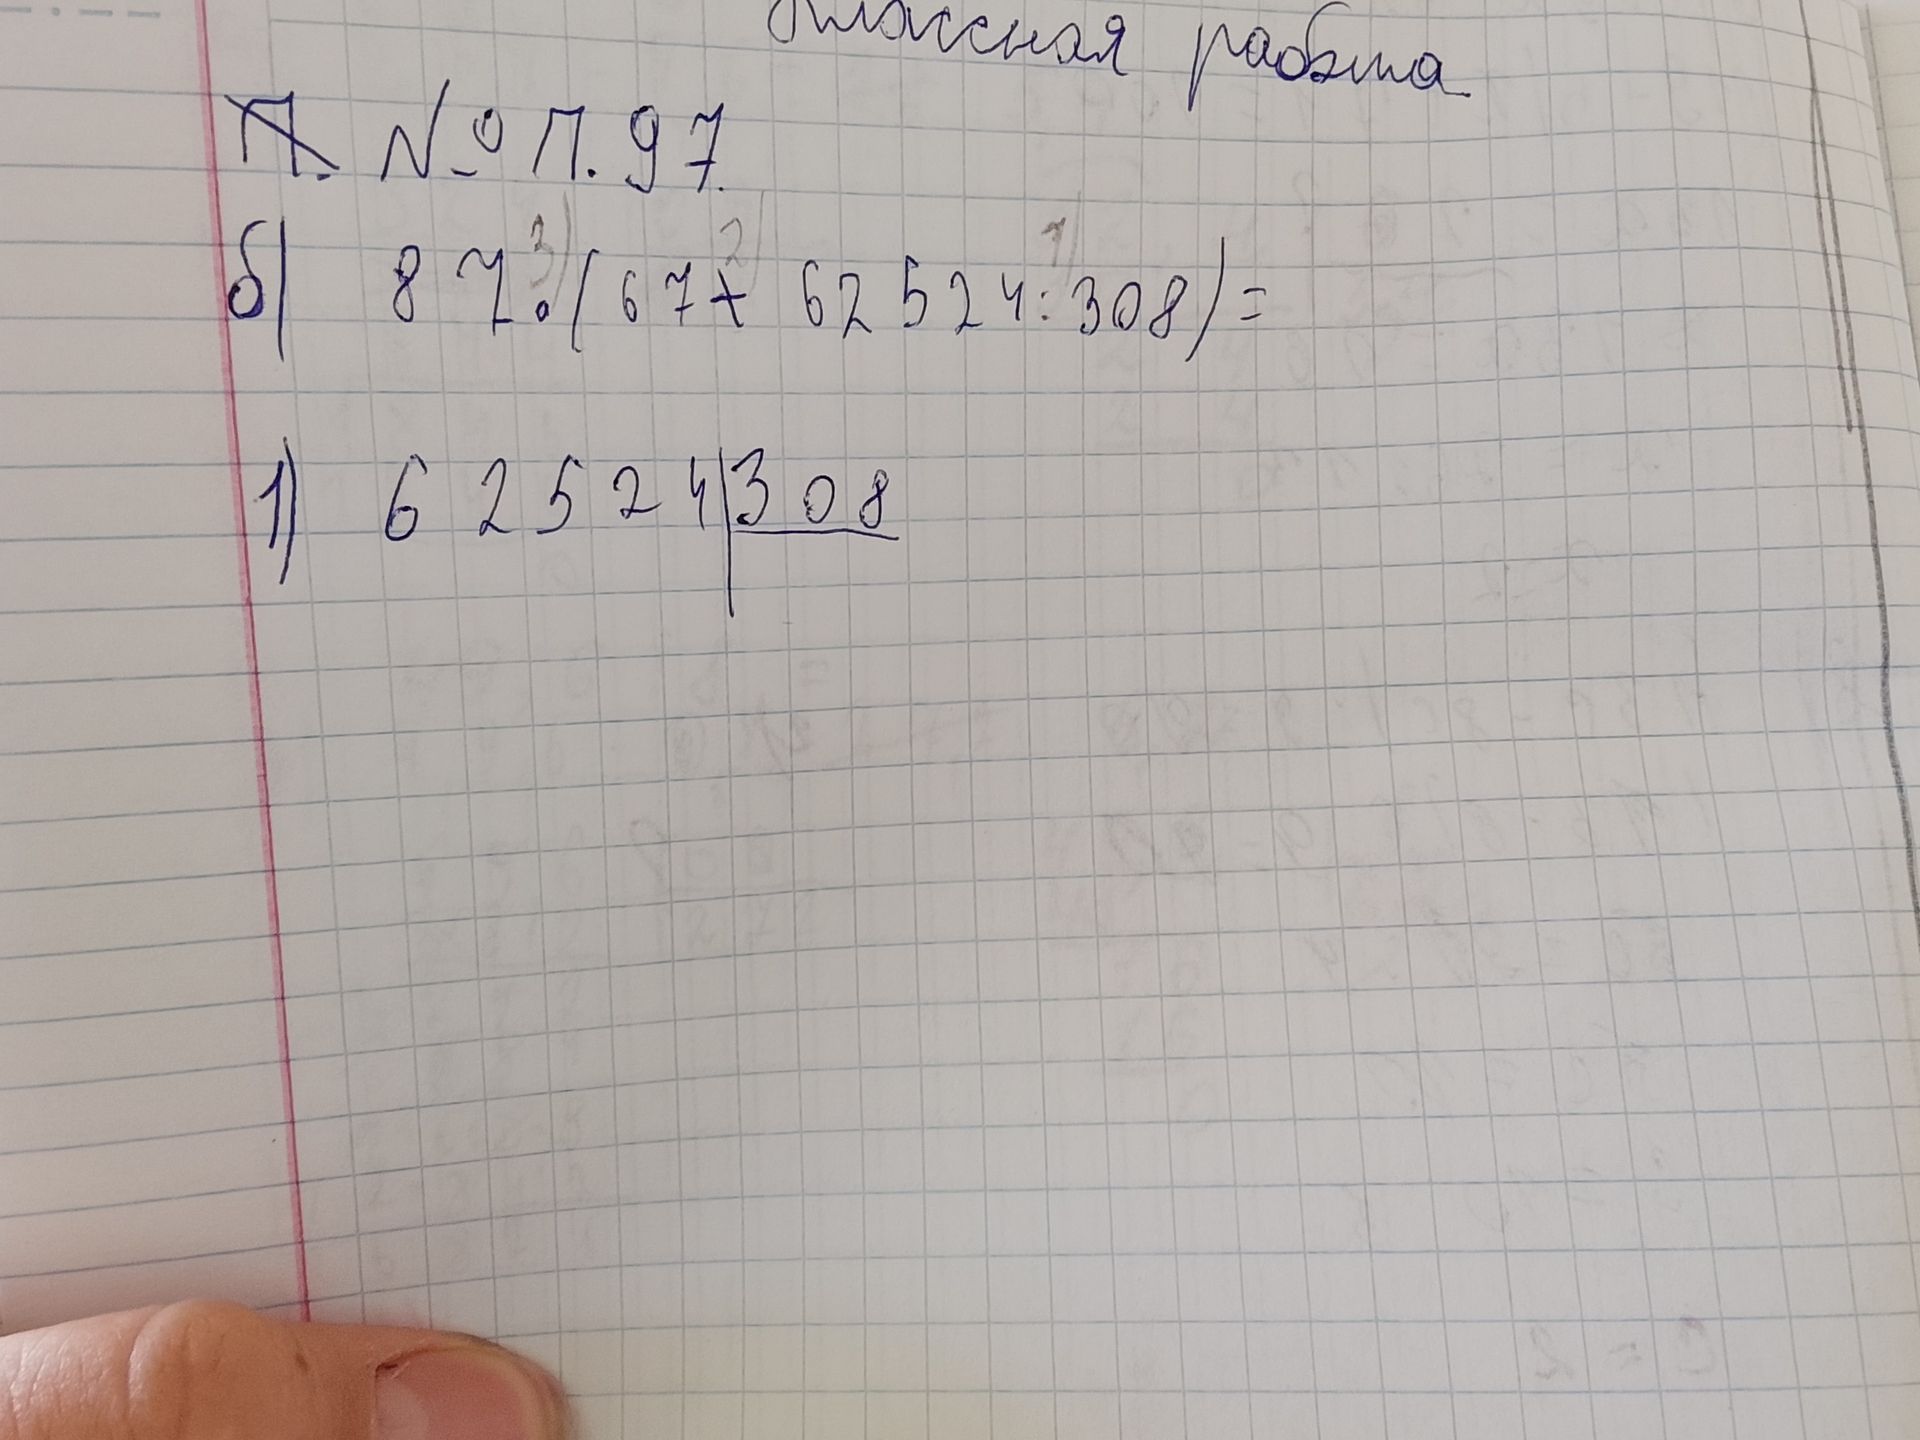 Классная работа
П. № П.97.
3) 2) 1)
б) 87·(67+62524:308)=
1) 62524|308